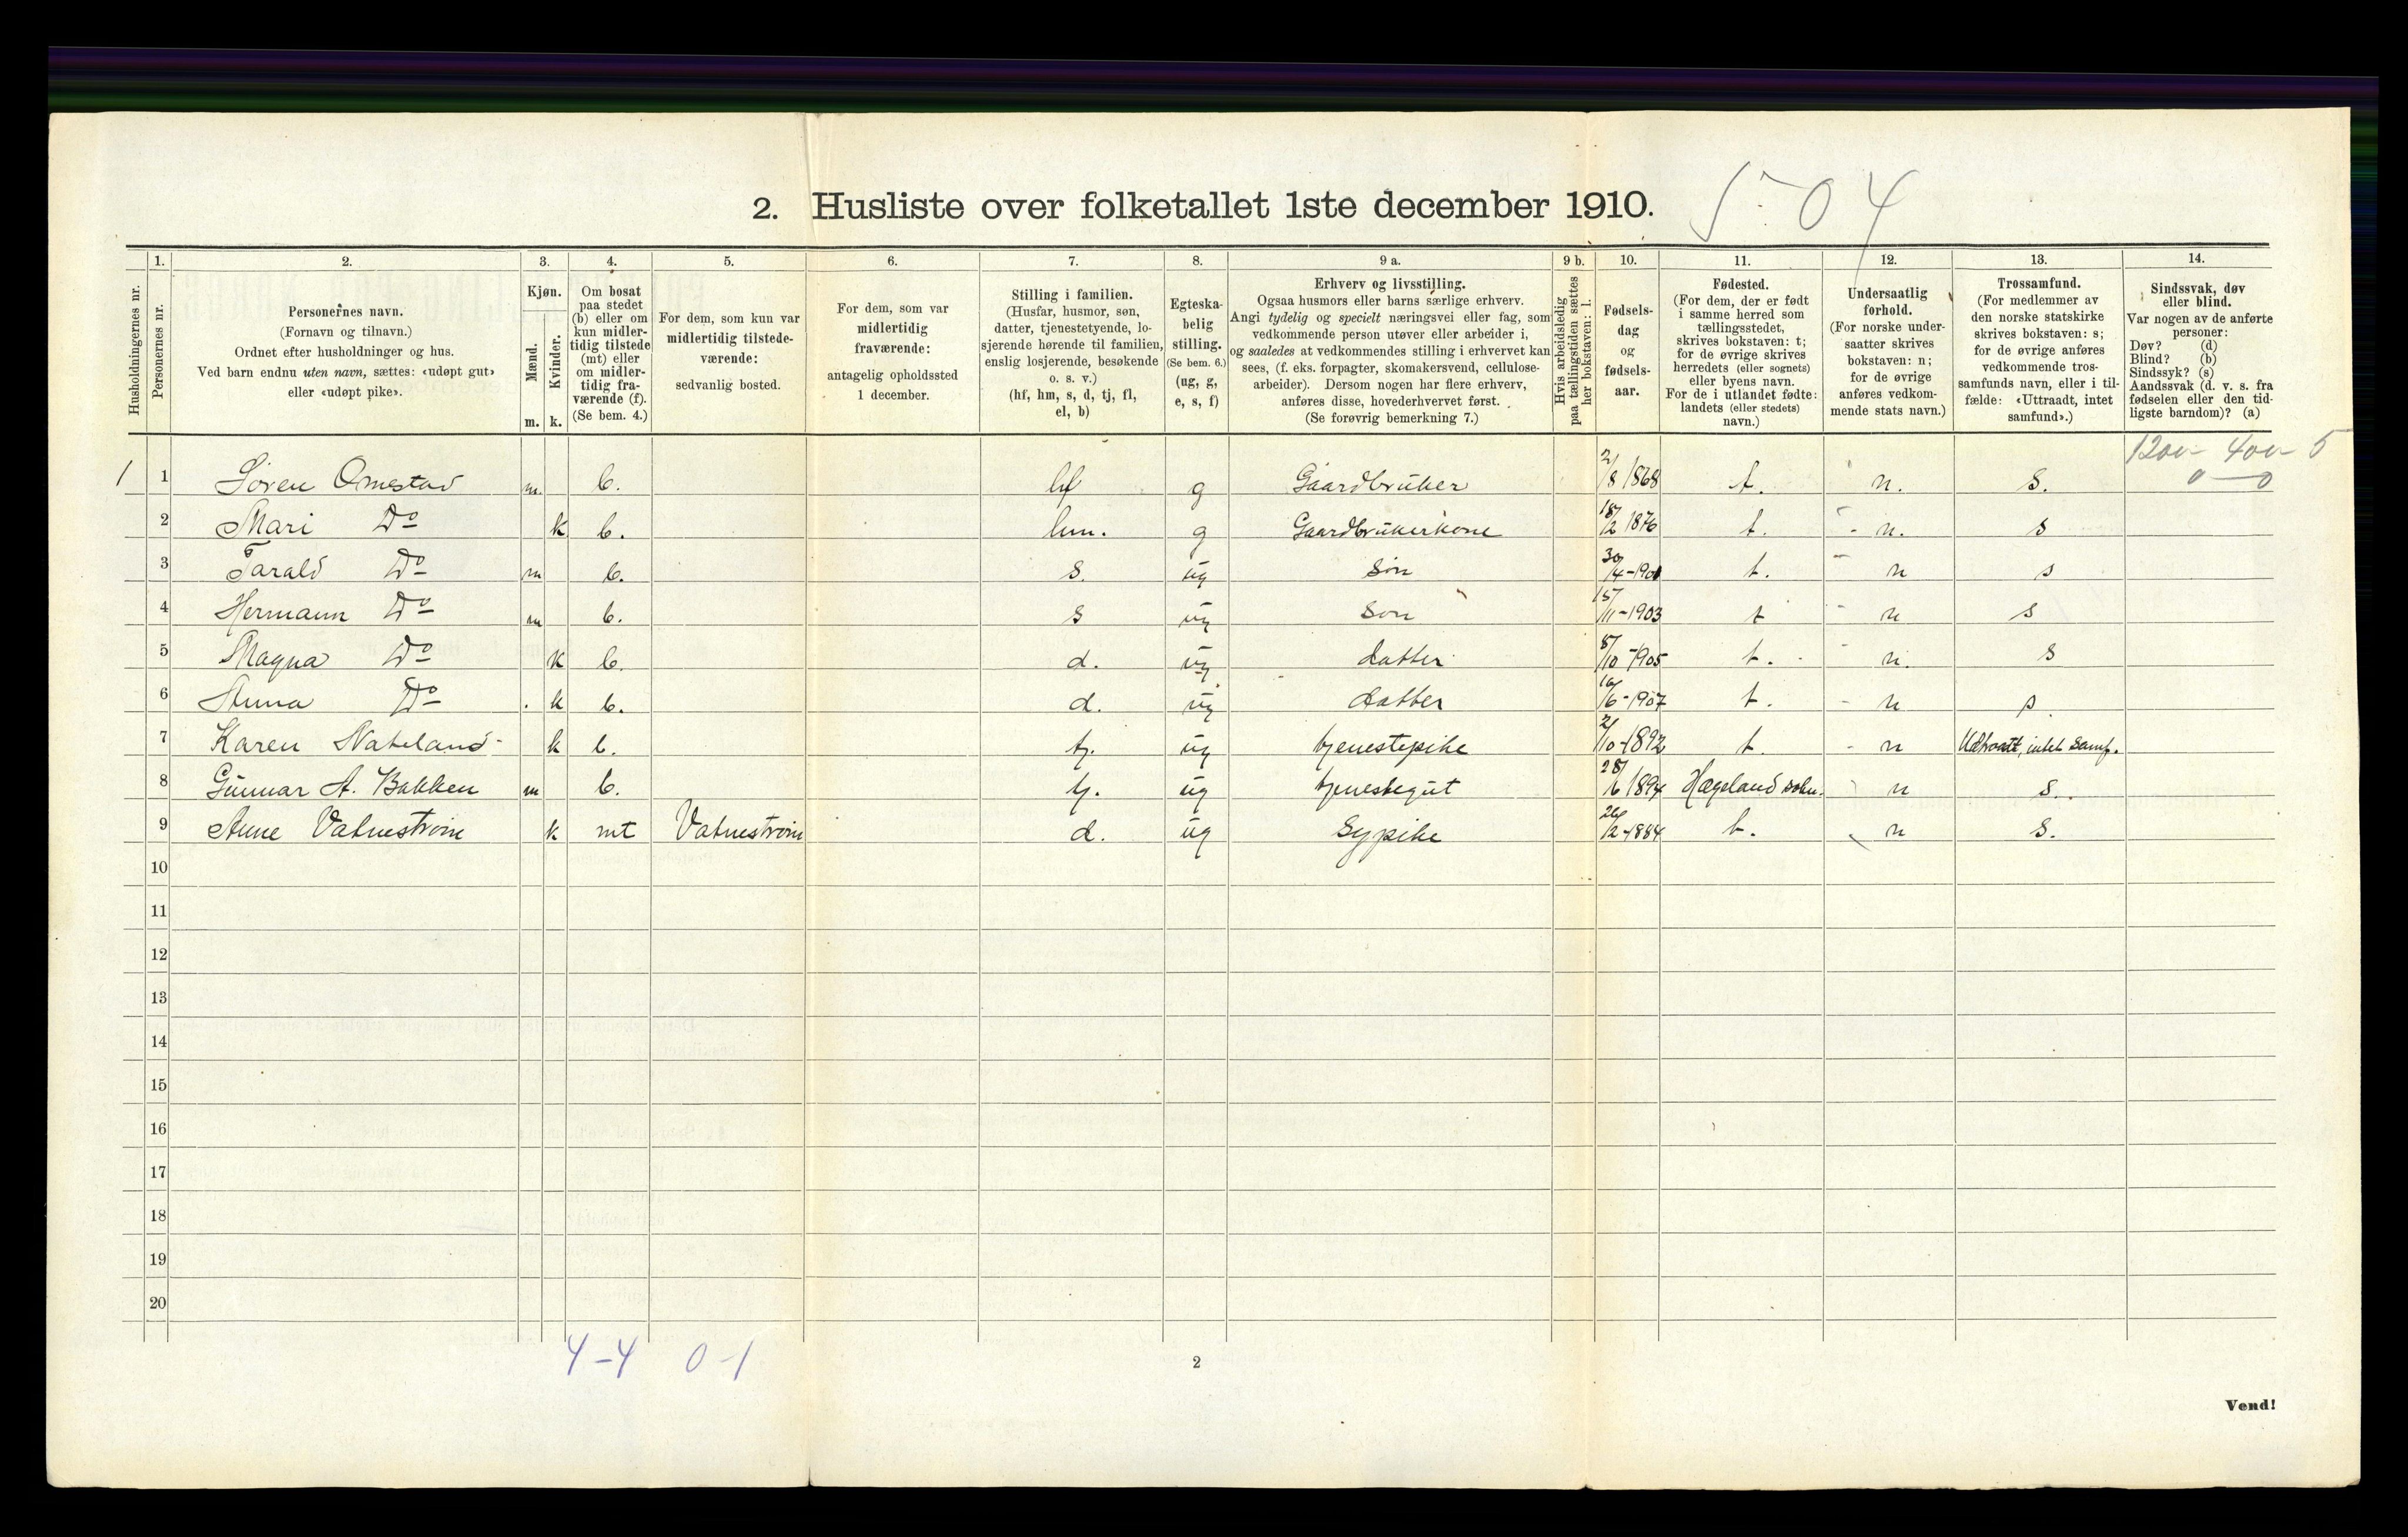 2. Husliste over folketallet 1ste december 1910.
5-04
Husholdningernes nr.
1.
Personernes nr.
2.
Personernes navn.
(Fornavn og tilnavn.)
Ordnet efter husholdninger og hus.
Ved barn endnu uten navn, sættes: «udøpt gut»
eller «udøpt pike».
3.
Kjøn.
Mænd.
Kvinder.
m. k.
4.
Om bosat
paa stedet
(b) eller om
kun midler-
tidig tilstede
(mt) eller
om midler-
tidig fra-
værende (f).
(Se bem. 4.)
5.
For dem, som kun var
midlertidig tilstede-
værende:
sedvanlig bosted.
6.
For dem, som var
midlertidig
fraværende:
antagelig opholdssted
1 december.
7.
Stilling i familien.
(Husfar, husmor, søn,
datter, tjenestetyende, lo-
sjerende hørende til familien,
enslig losjerende, besøkende
o. s. v.)
(hf, hm, s, d, tj, fl,
el, b)
8.
Egteska-
belig
stilling.
(Se bem. 6.)
(ug, g,
e, s, f)
9 a.
Erhverv og livsstilling.
Ogsaa husmors eller barns særlige erhverv.
Angi tydelig og specielt næringsvei eller fag, som
vedkommende person utøver eller arbeider i,
og saaledes at vedkommendes stilling i erhvervet kan
sees, (f. eks. forpagter, skomakersvend, cellulose-
arbeider). Dersom nogen har flere erhverv,
anføres disse, hovederhvervet først.
(Se forøvrig bemerkning 7.)
9 b.
Hvis arbeidsledig
paa tællingstiden sættes
her bokstaven: l.
10.
Fødsels-
dag
og
fødsels-
aar.
11.
Fødested.
(For dem, der er født
i samme herred som
tællingsstedet,
skrives bokstaven: t;
for de øvrige skrives
herredets (eller sognets)
eller byens navn.
For de i utlandet fødte:
landets (eller stedets)
navn.)
12.
Undersaatlig
forhold.
(For norske under-
saatter skrives
bokstaven: n;
for de øvrige
anføres vedkom-
mende stats navn.)
13.
Trossamfund.
(For medlemmer av
den norske statskirke
skrives bokstaven: s;
for de øvrige anføres
vedkommende tros-
samfunds navn, eller i til-
fælde: «Uttraadt, intet
samfund».)
14.
Sindssvak, døv
eller blind.
Var nogen av de anførte
personer:
Døv? (d)
Blind? (b)
Sindssyk? (s)
Aandssvak (d. v. s. fra
fødselen eller den tid-
ligste barndom)? (a)
1200 - 400 - 5
0 — 0
1 1 Søren Omestad m. b. hf g Gaardbruker 2/8 1868 t. n. s.
2 Mari Do k b. hm. g Gaardbrukerkone 18/2 1876 t. - n. s
3 Tarald Do m b. s. ug søn 30/4-1901 t. - n s
4 Hermann Do m b. s ug søn 15/11-1903 t - n s
5 Magna Do k b. d. ug datter 8/10-1905 t. - n. s
6 Anna Do k b. d. ug datter 16/6-1907 t. - n s.
7 Karen Nateland k b. tj. ug tjenestepike 2/10-1892 t - n Udtraatt, intet samf.
8 Gunnar A. Bakken m b. tj. ug tjenestegut 28/6 1894 Hægeland sokn. n s.
9 Anne Vatnestrøm k mt Vatnestrøm d. ug Sypike 26/2-1884 t. n s.
10
11
12
13
14
15
16
17
18
19
20
4-4 0-1
2
Vend!